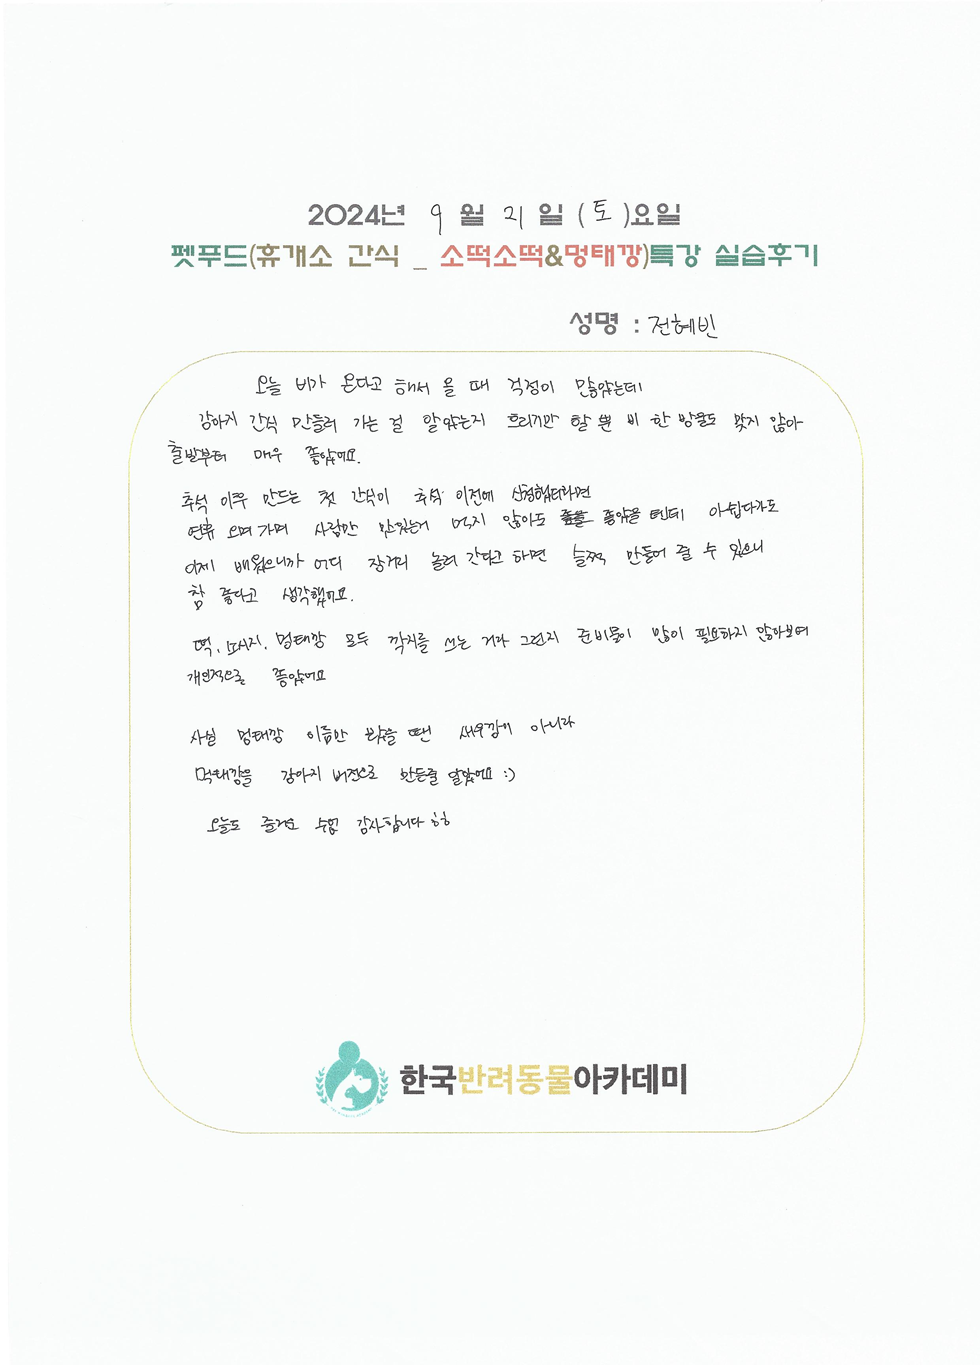 2024년 9월 21일 (토)요일
펫푸드(휴개소 간식 _ 소떡소떡&멍태깡)특강 실습후기
성명 : 전혜빈
오늘 비가 온다고 해서 올 때 걱정이 많았는데
강아지 간식 만들러 가는 걸 알았는지 흐리기만 할 뿐 비 한 방울도 맞지 않아
출발부터 매우 좋았어요.
추석 이후 만드는 첫 간식이 추석 이전에 신청했더라면
연휴 오며가며 사람만 맛있는거 먹지 않아도 좋았을 텐데 아쉽다가도
이제 배웠으니까 어디 장거리 놀러 간다고 하면 슬쩍 만들어 줄 수 있으니
참 좋다고 생각했어요.
떡, 소시지, 멍태깡 모두 깍지를 쓰는 거라 그런지 준비물이 많이 필요하지 않아보여
개인적으로 좋았어요
사실 멍태깡 이름만 봤을 땐 새우깡이 아니라
먹태깡을 강아지 버전으로 만든줄 알았어요 :)
오늘도 즐거운 수업 감사합니다 ㅎㅎ
한국반려동물아카데미